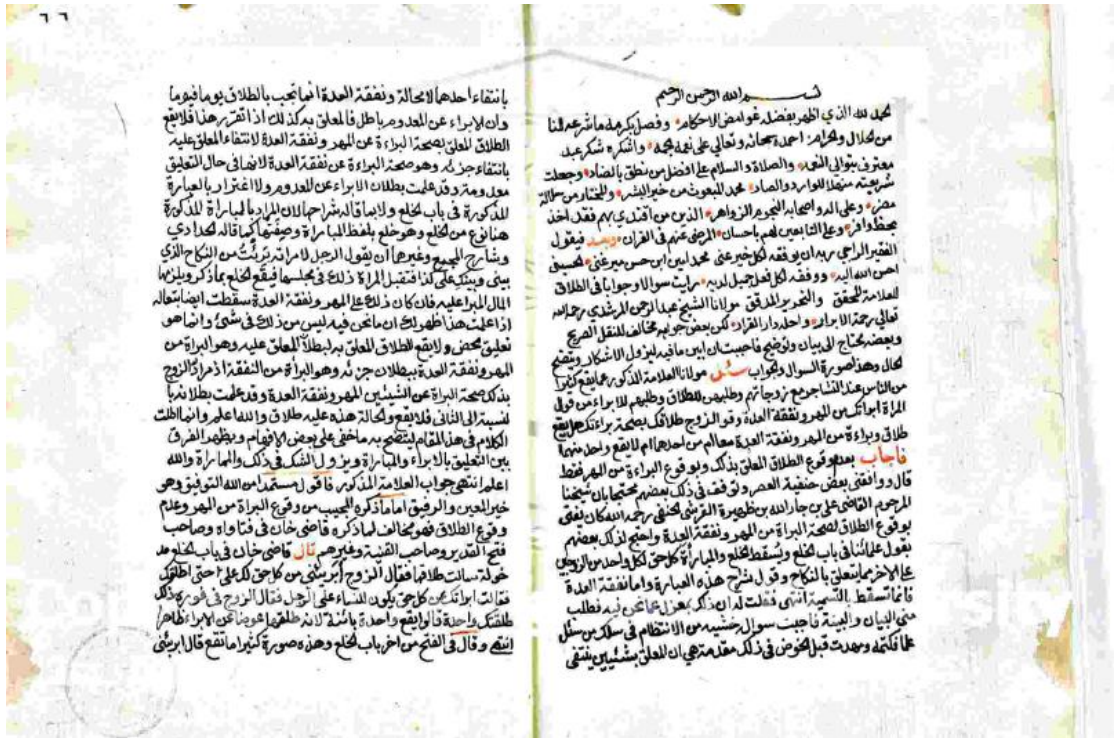 بسم الله الرحمن الرحيم
نحمد لله الذي اظهر بفضله غوامض الاحكام وفصل بكرمه ما شرعه لنا
من الحلال والحرام احمده سبحانه وتعالى على نعمه واشكره شكر عبد
معترف بتوالي النعم والصلاة والسلام على افضل من نطق بالضاد وجعلت
شريعته منهلا للوارد والصاد محمد المبعوث من خير البشر والمختار من
مضر وعلى اله واصحابه النجوم الزواهر الذين من اقتدى بهم فقد اخذ
بحظ وافر وعلى التابعين لهم باحسان المرضي عنهم في القران وبعد فيقول
الفقير الراجي ربه ان يوفقه لكل خير عني محمد امين ابن حسن ميرغني الحسيني
احسن الله اليه ووفقه لكل فعل جميل لديه رايت سوالا وجوابا في الطلاق
للعلامة المحقق والتحرير المدقق مولانا الشيخ عبد الرحمن المرشدي رحمه الله
تعالى رحمة الابرار واحله دار القرار لكن بعض جوابه مخالف للنقل الصريح
وبعضه يحتاج الى بيان وتوضيح فاحببت ان ابين ما فيه ليزول الاشكال ويتضح
الحال وهذا صورة السوال والجواب سئل مولانا العلامة المذكور عما يقع كثيرا
من الناس عند التشاجر مع زوجاتهم وطلبهن للطلاق وطلبهم للابراء من قول
المراة ابراتك من المهر ونفقة العدة وقول الزوج طلاقك بصحة براءتك هل يقع
طلاق وبراءة من المهر ونفقة العدة معا ام من احدهما ام لا يقع واحد منهما
فاجاب بعدم وقوع الطلاق المعلق بذلك وبوقوع البراءة من المهر فقط
قال ووافقني بعض حنفية العصر وتوقف في ذلك بعضهم محتجا بان شيخنا
المرحوم القاضي علي بن جار الله بن ظهيرة القرشي الحنفي رحمه الله كان يفتي
بوقوع الطلاق لصحة البراة من المهر ونفقة العدة واحتج لذلك بعضهم
بقول علمائنا في باب الخلع ويسقط الخلع والمباراة كل حق لكل واحد من الزوجين
على الاخر مما يتعلق بالنكاح وقول شرح هذه العبارة واما نفقة العدة
فانما تسقط بالتسمية انتهى فقلت له ان ذلك بمعزل عما نحن فيه فطلب
مني البيان والبينة فاجبت سواله خشية من الانتظام في سلك من سئل
علما فكتمه ومهدت قبل الخوض في ذلك مقدمة هي ان المعلق بشيئين ينتفي
٦٦
بانتفاء احدهما لا محالة ونفقة العدة انما تجب بالطلاق يوما فيوما
وان الابراء عن المعدوم باطل فالمعلق به كذلك اذا تقرر هذا فلا يقع
الطلاق المعلق بصحة البراءة عن المهر ونفقة العدة لانتفاء المعلق عليه
بانتفاء جزئه وهو صحة البراءة عن نفقة العدة لانها في حال التعليق
معدومة وقد علمت بطلان الابراء عن المعدوم ولا اغترار بالعبارة
المذكورة في باب الخلع ولا بما قاله شراحها لان المراد بالمباراة المذكورة
هنا نوع من الخلع وهو خلع بلفظ المباراة وصفتها كما قاله الحدادي
وشارح المجمع وغيرهما ان يقول الرجل لامراته برئت من النكاح الذي
بيني وبينك على كذا فتقبل المراة ذلك في مجلسها فيقع الخلع بما ذكر ويلزمها
المال المبرا عليه فان كان ذلك على المهر ونفقة العدة سقطت ايضا بتعاله
اذا علمت هذا ظهر لك ان ما نحن فيه ليس من ذلك في شئ وانما هو
تعليق محض ولا يقع الطلاق المعلق به لبطلان المعلق عليه وهو البراة من
المهر ونفقة العدة ببطلان جزئه وهو البراة من النفقة اذ مراد الزوج
بذلك صحة البراة عن الشيئين المهر ونفقة العدة وقد علمت بطلانه با
لنسبة الى الثاني فلا يقع والحالة هذه عليه طلاق والله اعلم وانما اطلت
الكلام في هذا المقام ليتضح به ما خفي على بعض الافهام ويظهر الفرق
بين التعليق بالابراء والمباراة ويزول الشك في ذلك والمماراة والله
اعلم انتهى جواب العلامة المذكور فاقول مستمدا من الله التوفيق وهو
خير المعين والرفيق اما ما ذكره المجيب من وقوع البراة من المهر وعدم
وقوع الطلاق فهو مخالف لما ذكره قاضي خان في فتاواه وصاحب
فتح القدير وصاحب القنية وغيرهم قال قاضي خان في باب الخلع مد
خولة سالت طلاقها فقال الزوج ابريني من كل حق لك علي حتى اطلقك
فقالت ابراتك عن كل حق يكون للنساء على الرجل فقال الزوج في فوره ذلك
طلقتك واحدة قالوا يقع واحدة بائنة لانه طلقها عوضا عن الابراء ظاهرا
انتهى وقال في الفتح من اخر باب الخلع وهذه صورة كثيرا ما تقع قال ابريني